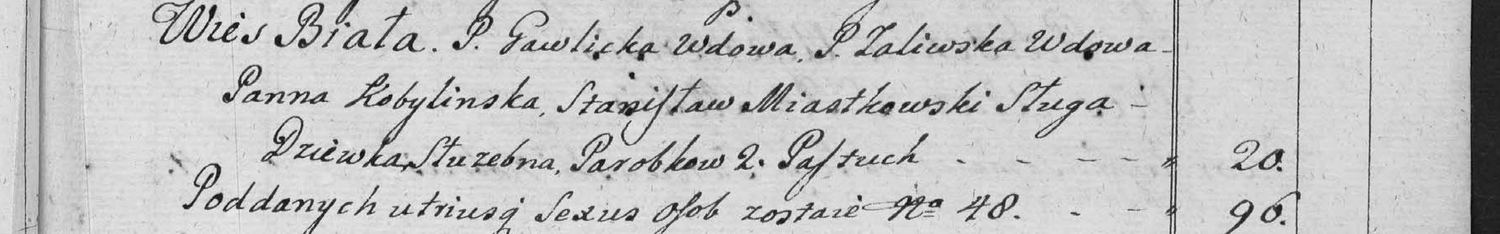 Wieś Biała. P. Gawlicka Wdowa, P. Zaliwska Wdowa -
Panna Kobylinska, Stanisław Miastkowski Sługa -
Dziewka Służebna, Parobkow 2. Pastuch - - - - „ 20.
Poddanych utriusq Sexus osob zostaie Nº 48. - - „ 96.